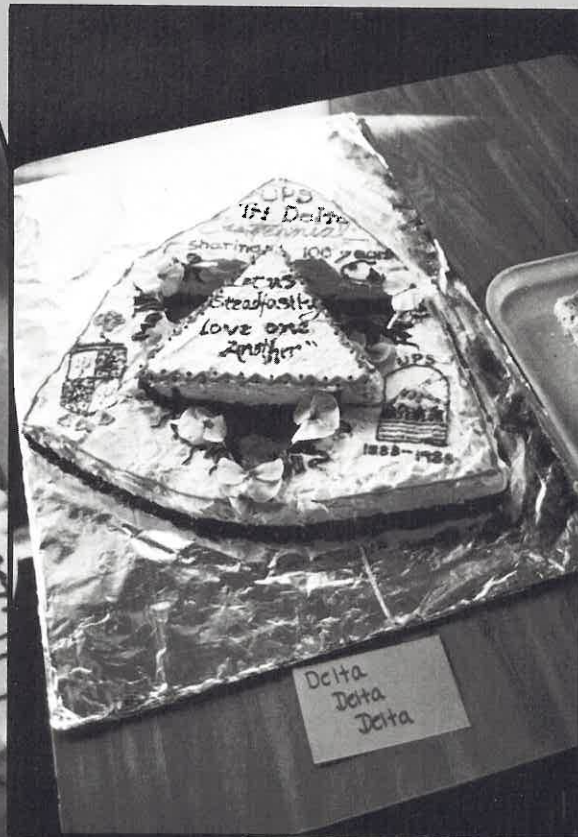 UPS
Tri Delta
Centennial
sharing 100 years
"Let us
Steadfastly
Love one
Another"
UPS
1888-1988
Delta
Delta
Delta